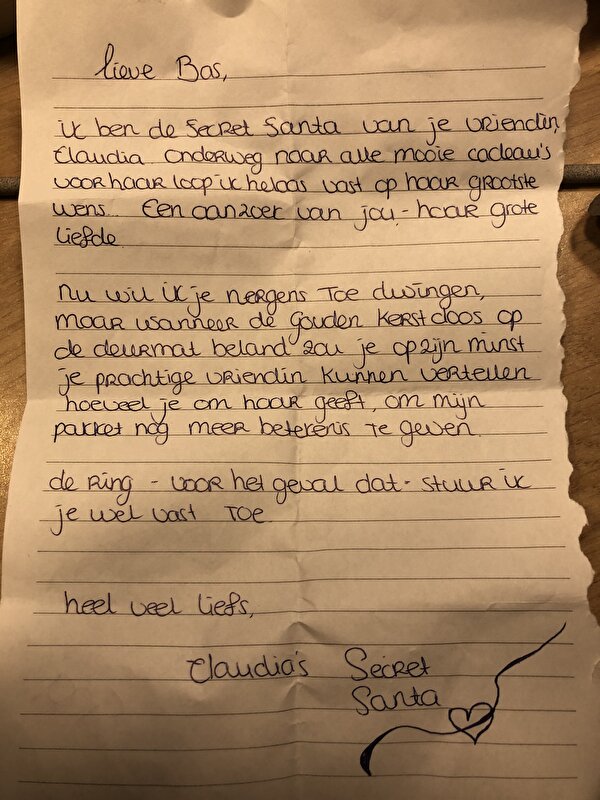 lieve Bas,
ik ben de Secret Santa van je vriendin,
Claudia onderweg naar alle mooie cadeau's
voor haar loop ik helaas vast op haar grootste
wens... Een aanzoek van jou, - haar grote
liefde
nu wil ik je nergens toe dwingen,
maar wanneer de gouden kerstdoos op
de deurmat beland zou je op zijn minst
je prachtige vriendin kunnen vertellen
hoeveel je om haar geeft, om mijn
pakket nog meer betekenis te geven.
de ring - voor het geval dat - stuur ik
je wel vast toe
heel veel liefs,
Claudia's Secret
Santa